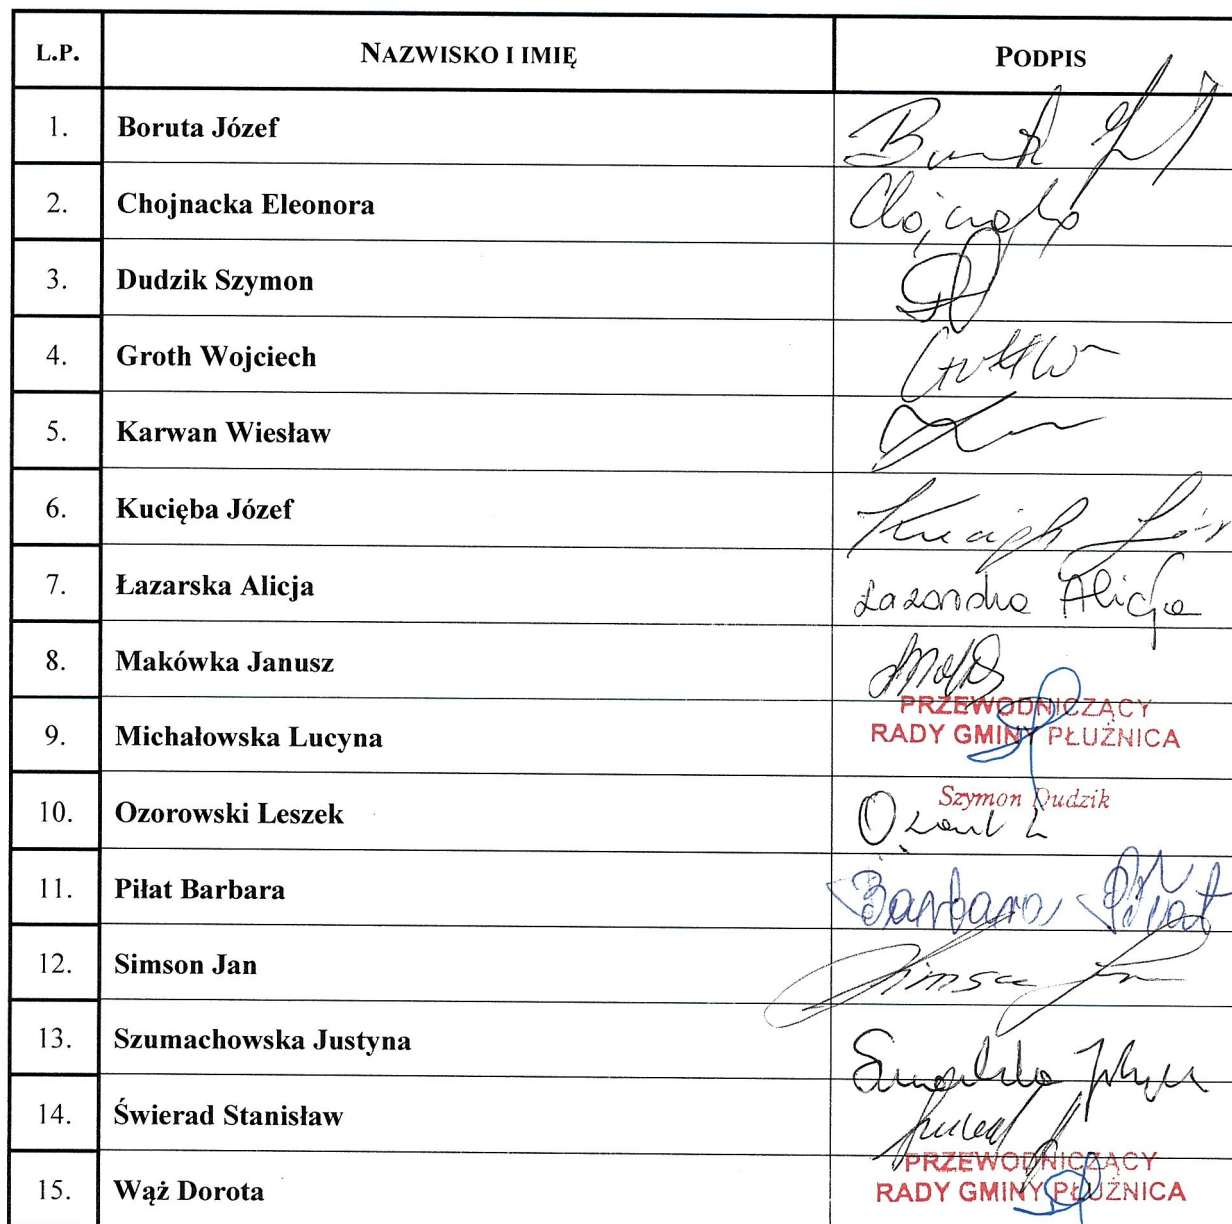 L.P. NAZWISKO I IMIĘ PODPIS
1. Boruta Józef
2. Chojnacka Eleonora
3. Dudzik Szymon
4. Groth Wojciech
5. Karwan Wiesław
6. Kucięba Józef
7. Łazarska Alicja Łazarska Alicja
8. Makówka Janusz
PRZEWODNICZĄCY
9. Michałowska Lucyna RADY GMINY PŁUŻNICA
Szymon Dudzik
10. Ozorowski Leszek
11. Piłat Barbara Barbara Piłat
12. Simson Jan
13. Szumachowska Justyna
14. Świerad Stanisław
PRZEWODNICZĄCY
15. Wąż Dorota RADY GMINY PŁUŻNICA